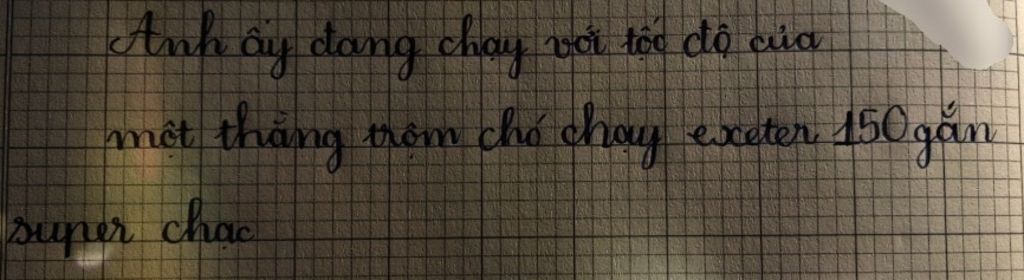 Anh ấy đang chạy với tốc độ của
một thằng trộm chó chạy exeter 150 gắn
super chạc